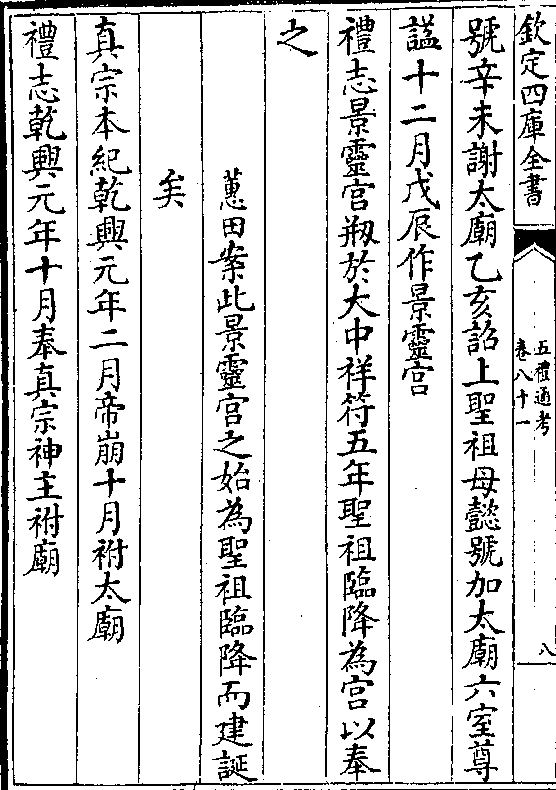 欽定四庫全書
五禮通考
卷八十一
八
號辛未謝太廟乙亥詔上聖祖母懿號加太廟六室尊
諡十二月戊辰作景靈宮
禮志景靈宮剏於大中祥符五年聖祖臨降為宮以奉
之
蕙田案此景靈宮之始為聖祖臨降而建誕
矣
真宗本紀乾興元年二月帝崩十月祔太廟
禮志乾興元年十月奉真宗神主祔廟